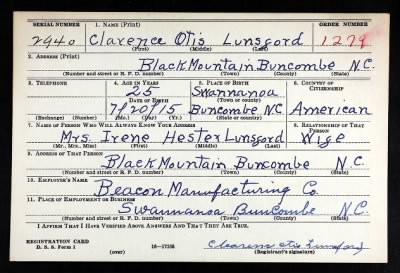 SERIAL NUMBER 1. NAME (Print) ORDER NUMBER
2940 Clarence Otis Lunsford 1279
(First) (Middle) (Last)
2. ADDRESS (Print)
Black Mountain Buncombe N.C.
(Number and street or R. F. D. number) (Town) (County) (State)
3. TELEPHONE 4. AGE IN YEARS 5. PLACE OF BIRTH 6. COUNTRY OF CITIZENSHIP
25 Swannanoa
DATE OF BIRTH (Town or county)
7/20/15 Buncombe N.C. American
(Exchange) (Number) (Mo.) (Day) (Yr.) (State or country)
7. NAME OF PERSON WHO WILL ALWAYS KNOW YOUR ADDRESS 8. RELATIONSHIP OF THAT PERSON
Mrs. Irene Hester Lunsford Wife
(Mr., Mrs., Miss) (First) (Middle) (Last)
9. ADDRESS OF THAT PERSON
Black Mountain Buncombe N.C.
(Number and street or R. F. D. number) (Town) (County) (State)
10. EMPLOYER'S NAME
Beacon Manufacturing Co.
11. PLACE OF EMPLOYMENT OR BUSINESS
Swannanoa Buncombe N.C.
(Number and street or R. F. D. number) (Town) (County) (State)
I AFFIRM THAT I HAVE VERIFIED ABOVE ANSWERS AND THAT THEY ARE TRUE.
REGISTRATION CARD
D. S. S. Form 1 (over) 16-17105 Clarence Otis Lunsford
(Registrant's signature)